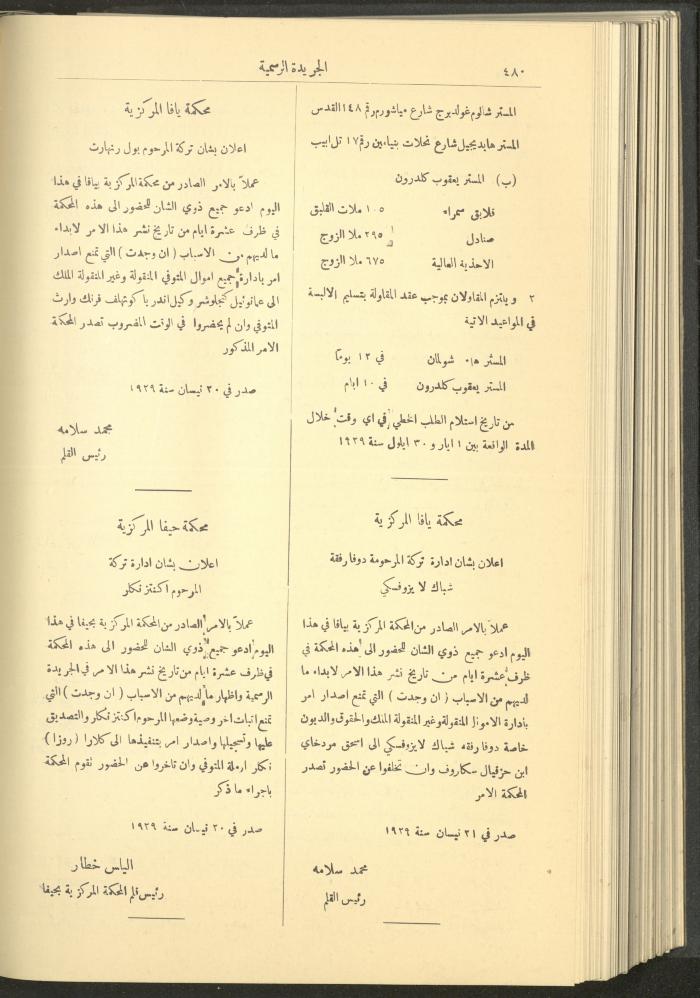 ٤٨٠
الجريدة الرسمية
المستر شالوم غولدبرج شارع مياشورم رقم ١٤٨ القدس
المستر هابديجيل شارع نحلات بنيامين رقم ١٧ تل ابيب
(ب) المستر يعقوب كلدرون
فلابق سمراء ١٠٥ ملات القلبق
صنادل ٢٩٥ ملا الزوج
الاحذية العالية ٦٧٥ ملا الزوج
٢ ويلتزم المقاولان بموجب عقد المقاولة بتسليم الالبسة
في المواعيد الاتية
المستر هـ. شولمان في ١٢ يوما
المستر يعقوب كلدرون في ١٠ ايام
من تاريخ استلام الطلب الخطي في اي وقت خلال
المدة الواقعة بين ١ ايار و ٣٠ ايلول سنة ١٩٢٩
محكمة يافا المركزية
اعلان بشان ادارة تركة المرحومة دوفارفقة
شباك لايزوفسكي
عملا بالامر الصادر من المحكمة المركزية بيافا في هذا
اليوم ادعو جميع ذوي الشان للحضور الى هذه المحكمة في
ظرف عشرة ايام من تاريخ نشر هذا الامر لابداء ما
لديهم من الاسباب (ان وجدت) التي تمنع اصدار امر
بادارة الاموال المنقولة وغير المنقولة الملك والحقوق والديون
خاصة دوفارفقه شباك لايزوفسكي الى اسحق مردخاي
ابن حزقيال سكاروف وان تخلفوا عن الحضور تصدر
المحكمة الامر
صدر في ٢١ نيسان سنة ١٩٢٩
محمد سلامه
رئيس القلم
محكمة يافا المركزية
اعلان بشان تركة المرحوم بول رنهارت
عملاً بالامر الصادر من محكمة المركزية بيافا في هذا
اليوم ادعو جميع ذوي الشان للحضور الى هذه المحكمة
في ظرف عشرة ايام من تاريخ نشر هذا الامر لابداء
ما لديهم من الاسباب (ان وجدت) التي تمنع اصدار
امر بادارة جميع اموال المتوفي المنقولة وغير المنقولة الملك
الى عمانوئيل كنجلوشر وكيل اندريا كوتهلف فرنك وارث
المتوفي وان لم يحضروا في الوقت المضروب تصدر المحكمة
الامر المذكور
صدر في ٢٠ نيسان سنة ١٩٢٩
محمد سلامه
رئيس القلم
محكمة حيفا المركزية
اعلان بشان ادارة تركة
المرحوم اكنتز نكلر
عملاً بالامر الصادر من المحكمة المركزية بحيفا في هذا
اليوم ادعو جميع ذوي الشان للحضور الى هذه المحكمة
في ظرف عشرة ايام من تاريخ نشر هذا الامر في الجريدة
الرسمية واظهار ما لديهم من الاسباب (ان وجدت) التي
تمنع اثبات اخر وصية وضعها المرحوم اكنتز نكلر والتصديق
عليها وتسجيلها واصدار امر بتنفيذها الى كلارا (روزا)
نكلر ارملة المتوفي وان تاخروا عن الحضور تقوم المحكمة
باجراء ما ذكر
صدر في ٢٠ نيسان سنة ١٩٢٩
الياس خطار
رئيس قلم المحكمة المركزية بحيفا